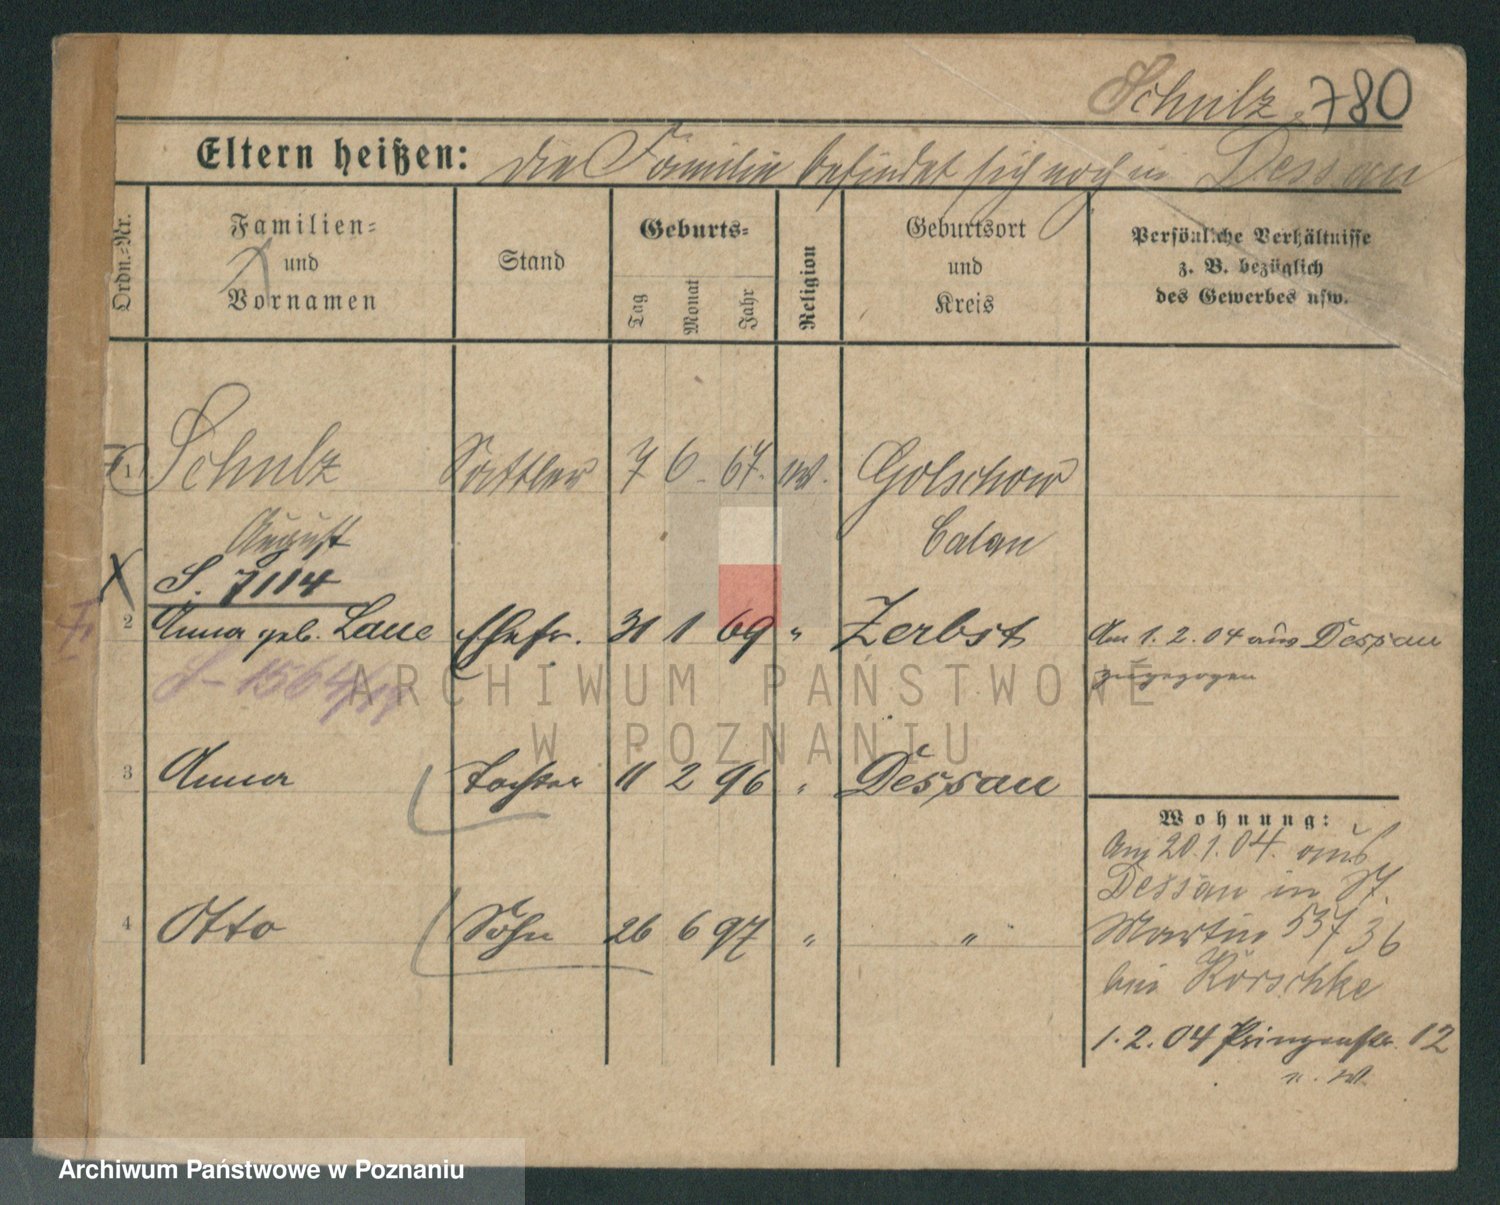 Schulz 780
Eltern heißen: die Familie befindet sich noch in Dessau
Ordn.-Nr.
Familien-
und
Vornamen
Stand
Geburts-
Tag
Monat
Jahr
Religion
Geburtsort
und
Kreis
Persönliche Verhältnisse
z. B. bezüglich
des Gewerbes usw.
1 Schulz Sattler 7 6 67. Golschow
August Calau
S. 7114
2 Anna geb. Laue Ehefr. 31 1 69 " Zerbst Am 1. 2. 04 aus Dessau
zugezogen
S-1564/19
ARCHIWUM PAŃSTWOWE
W POZNANIU
3 Anna Tochter 11 2 96 " Dessau
Wohnung:
Am 20. 1. 04. aus
Dessau in St.
4 Otto Sohn 26 6 97 " " Martin 537/36
bei Körschke
1. 2. 04 Prinzenstr. 12
n. W.
Archiwum Państwowe w Poznaniu